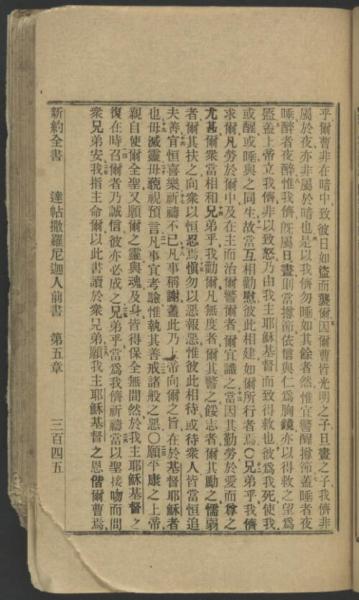 乎爾曹非在暗中致彼日如盜而襲爾因爾曹皆光明之子旦晝之子我儕非
屬於夜亦非屬於暗也是以我儕勿睡如其餘者然惟宜警醒撙節蓋睡者夜
睡醉者夜醉惟我儕既屬旦晝則當撙節依信與仁爲胸鏡亦以得救之望爲
盔蓋上帝立我儕非以致怒乃由我主耶穌基督而致得救也彼爲我死使我
或醒或睡與之同生故當互相勸慰彼此相建如爾所行者焉〇兄弟乎我儕
求爾凡勞於爾中及在主而治爾警爾者爾宜識之當因其勤勞於愛而尊之
尤甚爾衆當相和兄弟乎我勸爾凡無度者爾其警之餒志者爾其勵之懦弱
者爾其扶之向衆以恒忍焉愼勿以惡報惡惟彼此相待或待衆人皆當恒追
夫善宜恒喜樂祈禱不已凡事稱謝蓋此乃上帝向爾之旨在於基督耶穌者
也毋滅靈毋藐視預言凡事宜考驗惟執其善戒諸般之惡〇願平康之上帝
親自使爾全聖又願爾之靈與魂及身皆得保全無間然於我主耶穌基督之
復在時召爾者乃誠信彼亦必成之兄弟乎當爲我儕祈禱當以聖接吻而問
衆兄弟安我指主命爾以此書讀於衆兄弟願我主耶穌基督之恩偕爾曹焉
新約全書 達帖撒羅尼迦人前書 第五章 三百四五